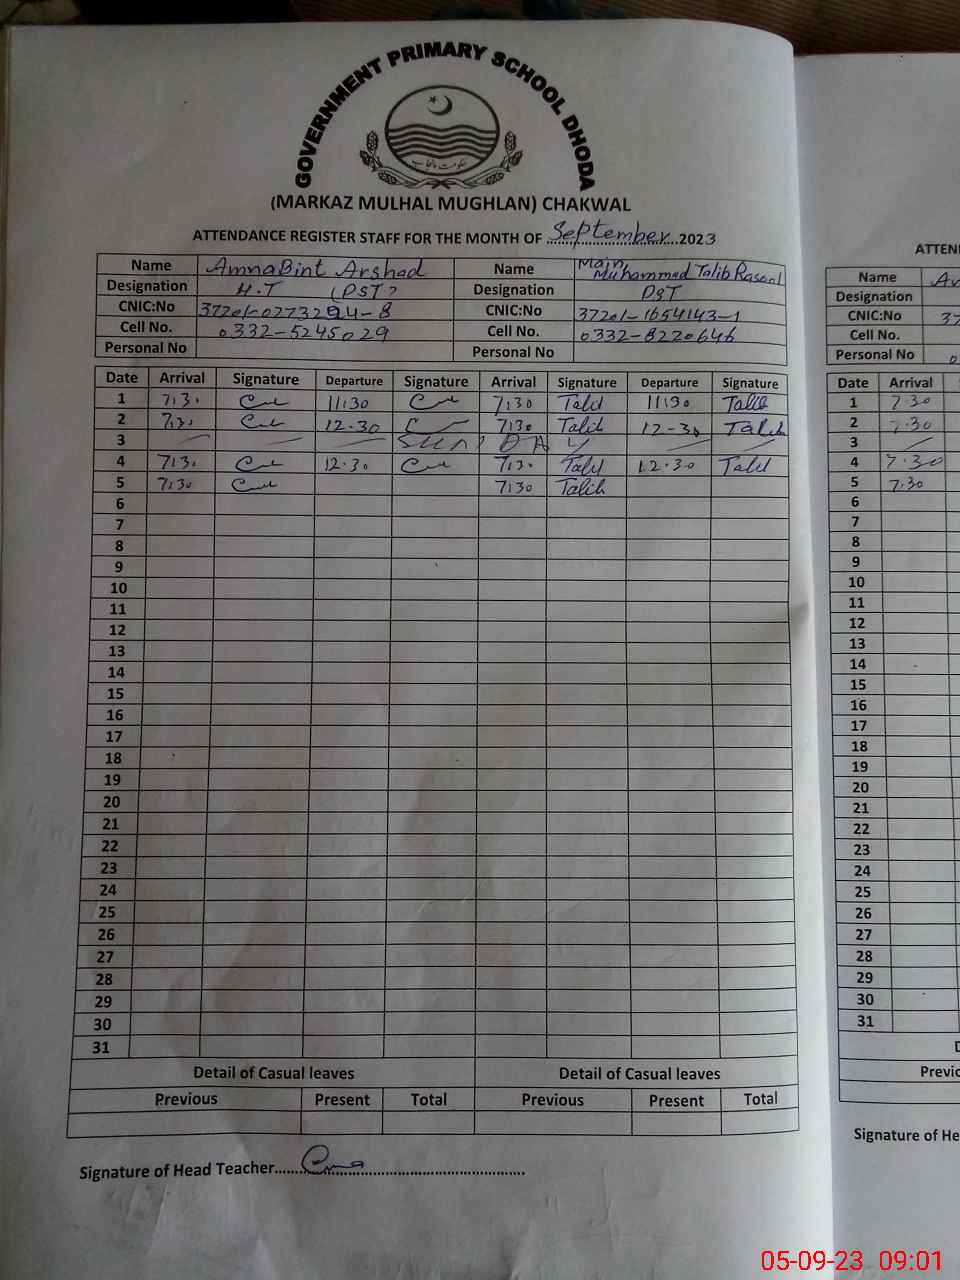 GOVERNMENT PRIMARY SCHOOL DHODA
حکومت پنجاب
(MARKAZ MULHAL MUGHLAN) CHAKWAL
ATTENDANCE REGISTER STAFF FOR THE MONTH OF September 2023
Name Amna Bint Arshad Name Main Muhammad Talib Rasool
Designation H.T (PST) Designation PST
CNIC:No 37201-0773294-8 CNIC:No 37201-1654143-1
Cell No. 0332-5245029 Cell No. 0332-8220646
Personal No Personal No
Date Arrival Signature Departure Signature Arrival Signature Departure Signature
1 7:30 11:30 7:30 Talib 11:30 Talib
2 7:30 12-30 7:30 Talib 12-30 Talib
3 SUN DAY
4 7:30 12-30 7:30 Talib 12-30 Talib
5 7:30 7:30 Talib
6
7
8
9
10
11
12
13
14
15
16
17
18
19
20
21
22
23
24
25
26
27
28
29
30
31
Detail of Casual leaves Detail of Casual leaves
Previous Present Total Previous Present Total
Signature of Head Teacher
ATTEN
Name
Designation
CNIC:No 37
Cell No.
Personal No
Date Arrival
1 7-30
2 7-30
3
4 7-30
5 7-30
6
7
8
9
10
11
12
13
14
15
16
17
18
19
20
21
22
23
24
25
26
27
28
29
30
31
D
Previo
Signature of He
05-09-23 09:01